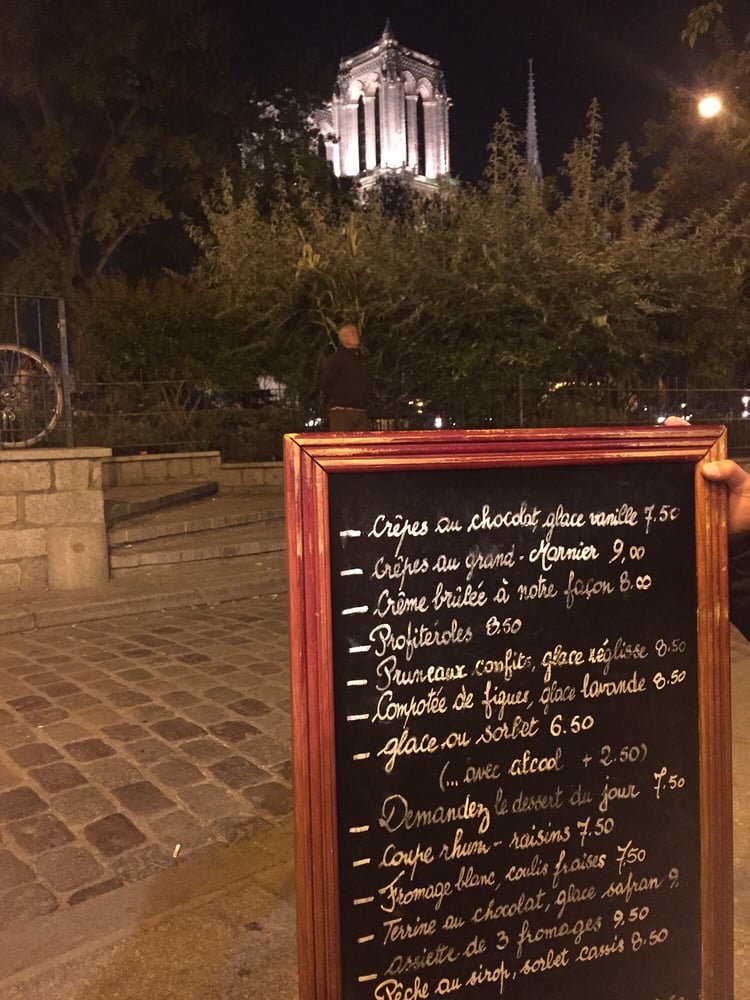 - Crêpes au chocolat, glace vanille 7.50
- Crêpes au grand-Marnier 9,00
- Crème brûlée à notre façon 8.00
- Profiteroles 8.50
- Pruneaux confits, glace réglisse 8.50
- Compotée de figues, glace lavande 8.50
- glace ou sorbet 6.50
(... avec alcool + 2.50)
- Demandez le dessert du jour 7.50
- Coupe rhum-raisins 7.50
- Fromage blanc, coulis fraises 7.50
- Terrine au chocolat, glace safran 9.
- assiette de 3 fromages 9.50
- Pêche au sirop, sorbet cassis 8.50